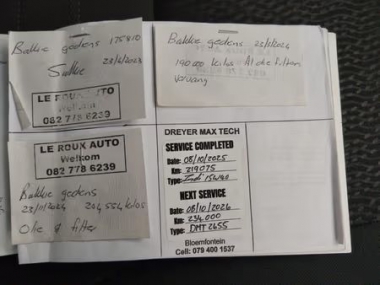 Bakkie gedens 175810
Sakkie
23/6/2023
LE ROUX AUTO
Welkom
082 778 6239
Bakkie gedens 22/1/2024
190 000 kilos Al die filters
vervang
LE ROUX AUTO
Welkom
082 778 6239
Bakkie gedens
23/11/2024 204 554 kilos
Olie & filter
DREYER MAX TECH
SERVICE COMPLETED
Date: 08/10/2025
Km: 219075
Type: 15W40
NEXT SERVICE
Date: 08/10/2026
Km: 234000
Type: DMT 2655
Bloemfontein
Cell: 079 400 1537